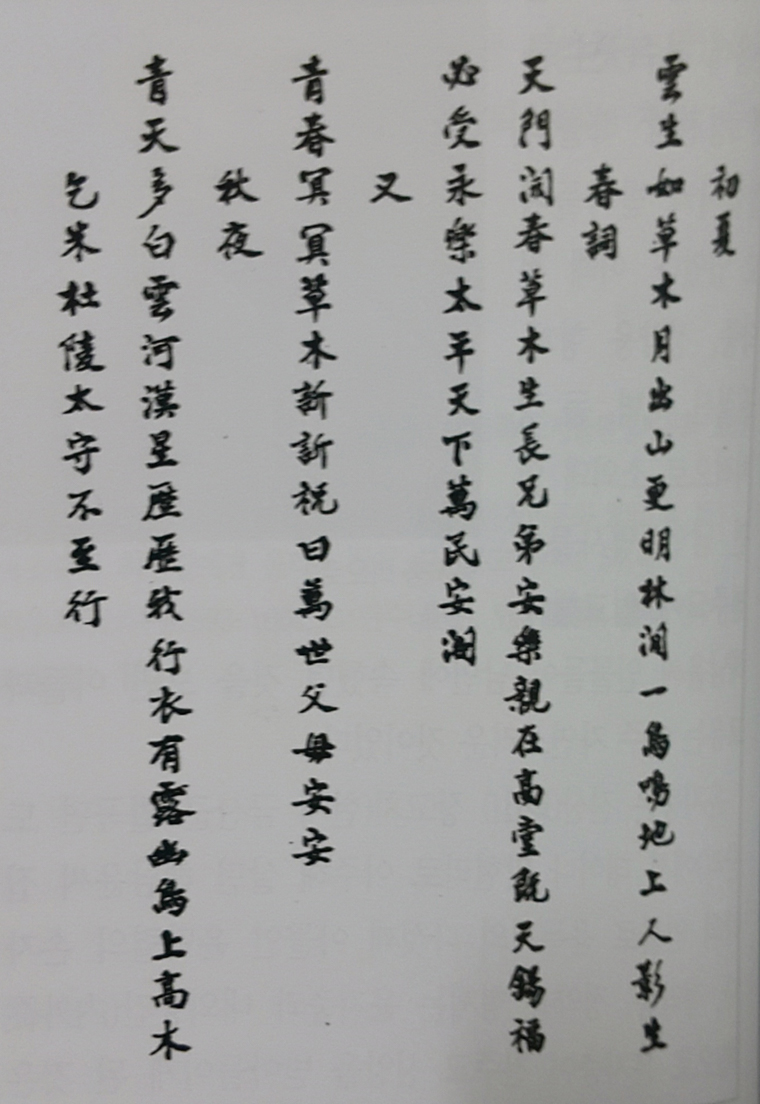 初夏
雲生如草木月出山更明林間一鳥鳴地上人影生
春詞
天門開春草木生長兄弟安樂親在高堂既天錫福
必受永樂太平天下萬民安閑
又
青春冥冥草木訢訢祝曰萬世父母安安
秋夜
青天多白雲河漢星歷歷我行衣有露幽鳥上高木
乞米杜陵太守不至行